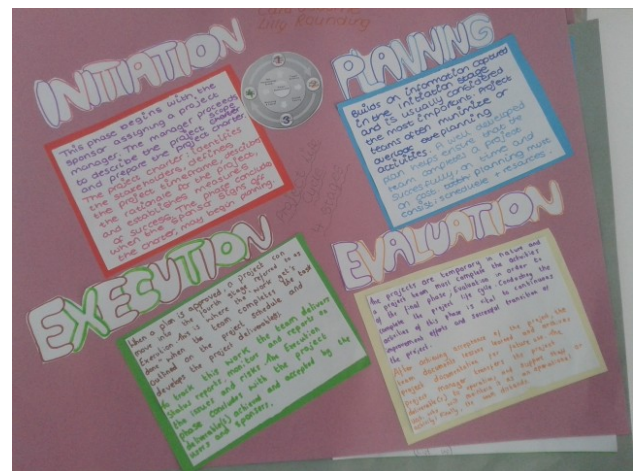 Lilly Rounding
INITIATION
This phase begins with the
sponsor assigning a project
manager. The manager proceeds
to describe the project scope
and prepare the project charter
The project charter identifies
the stakeholders, defines
the project timeframe, describe
the rationale for the project,
and establishes measures
of success. The phase conclude
when the sponsor signs off
the charter, may begin planning.
PLANNING
Builds on information captured
in the initiation stage
and is usually considered
the most important. Project
teams often minimize or
average out planning
activities. A well developed
plan helps ensure that the
team completes a project
successfully, on time and
on cost. planning must
consist schedule + resources.
EXECUTION
When a plan is approved, a project can
move into the fourth stage referred to as
Execution. this is where the work get's
done - when the team completes the task
outlined on the project schedule and
develops the project deliverable(s).
To track this work the team delivers
status reports, monitor and respond to
the issues and risks. The Execution
phase concludes with the project
deliverable(s) achieved and accepted by the
users and sponsors.
EVALUATION
As projects are temporary in nature and
a project team must complete the activities
of the final phase, Evaluation in order to
complete the project life cycle. Conducting the
activities of this phase is vital to continuous
improvement efforts and successful transition of
the project.
After achieving acceptance of the project, the
team documents lessons learned and archives
project documentation for future use. The
project manager transfers the project
deliverable(s) to operations and
who will maintain it as an operational
activity. Finally, the team